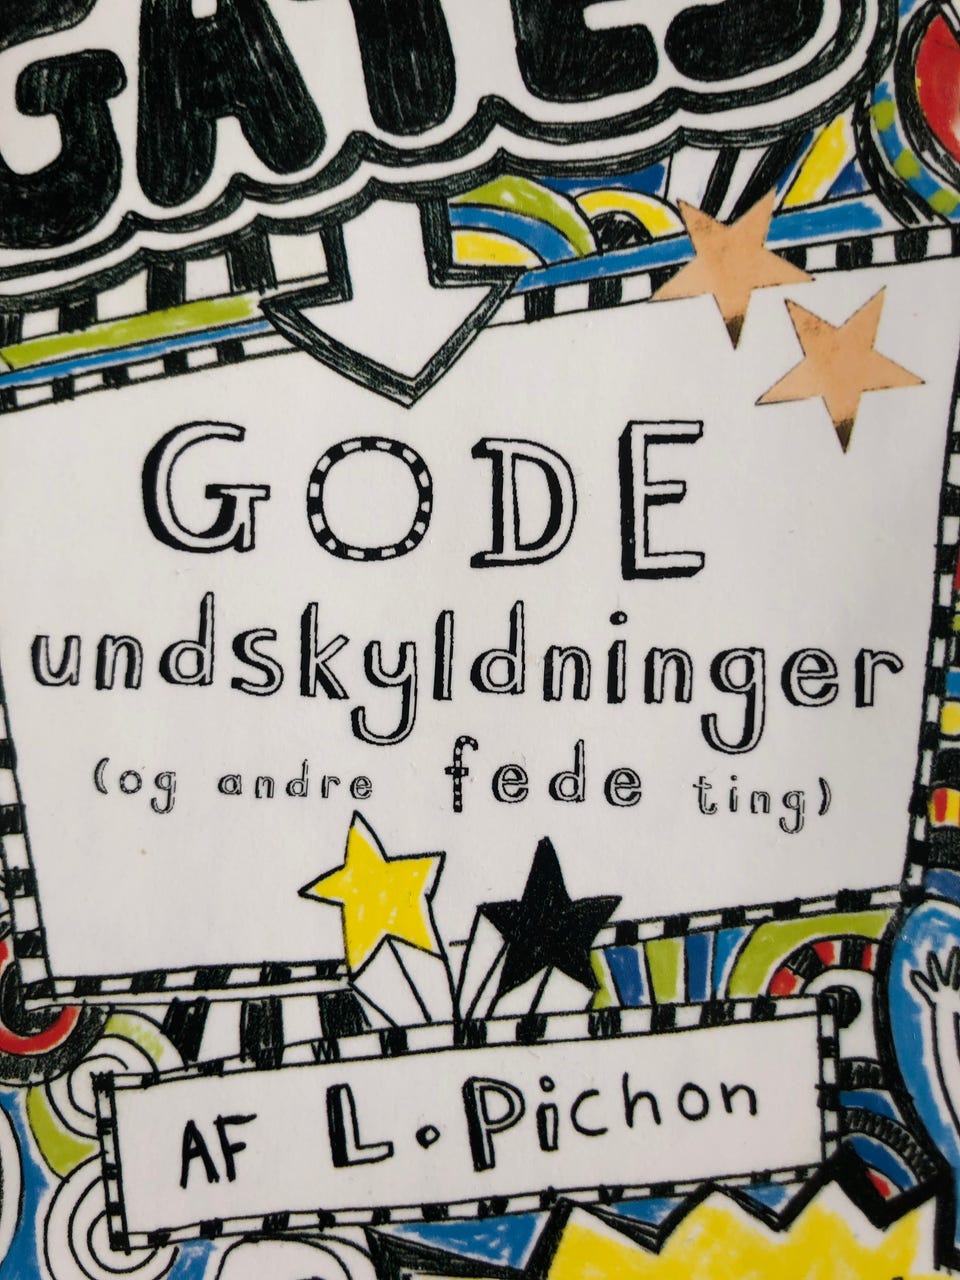 GATES
GODE
undskyldninger
(og andre fede ting)
AF L. Pichon